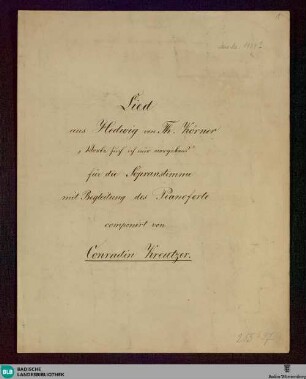 Lied
aus Hedwig von Th. Körner
„Worte such' ich mir vergebens"
für die Sopranstimme
mit Begleitung des Pianoforte
componirt von
Conradin Kreutzer.
BLB
BADISCHE
LANDESBIBLIOTHEK
Baden-Württemberg